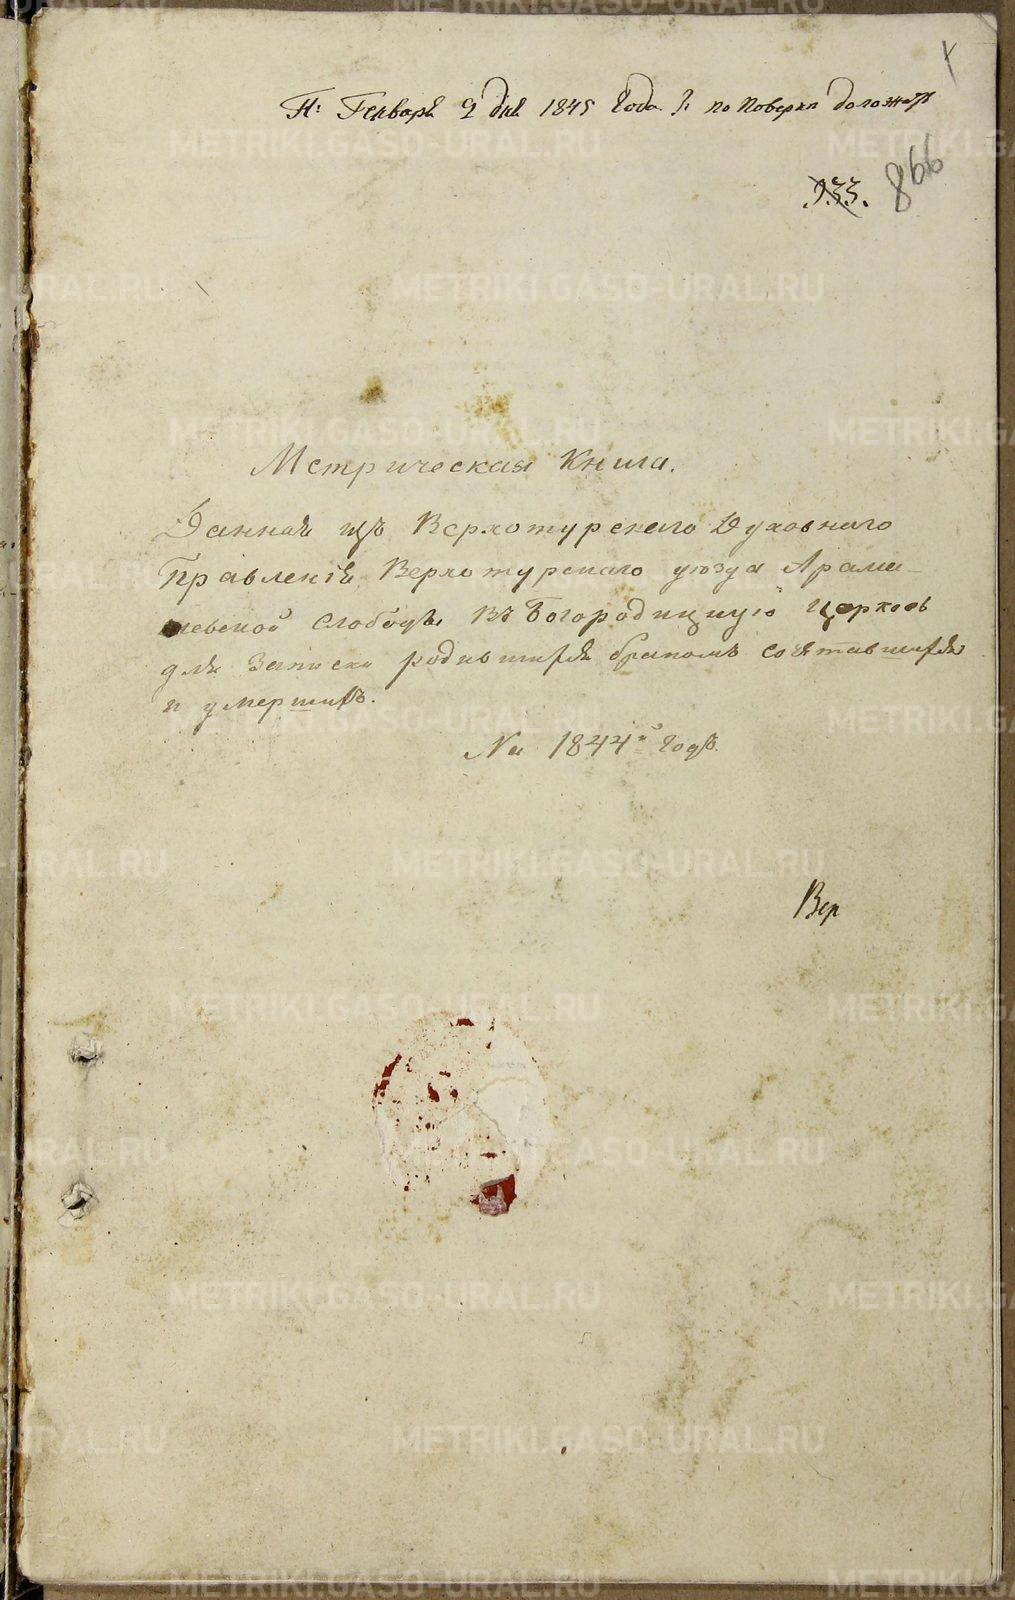 П: Генваря 9 дня 1845 года По поверки доложить
933. 866
Метрическая Книга.
Данная изъ Верхотурскаго Духовнаго
Правленія, Верхотурскаго уезда Арама-
шевской Слободы, Въ Богородицкую Церковь
для Записки родившихся бракомъ сочетавшихся
и умершихъ.
На 1844й Годъ.
Вер
METRIKI.GASO-URAL.RU